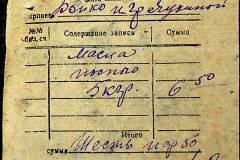 принять Бойко и Гречухиной
№№ бух. сч. Содержание записи Сумма
Масла
постого
5 кгр. 6 50
Итого
сумма Шесть